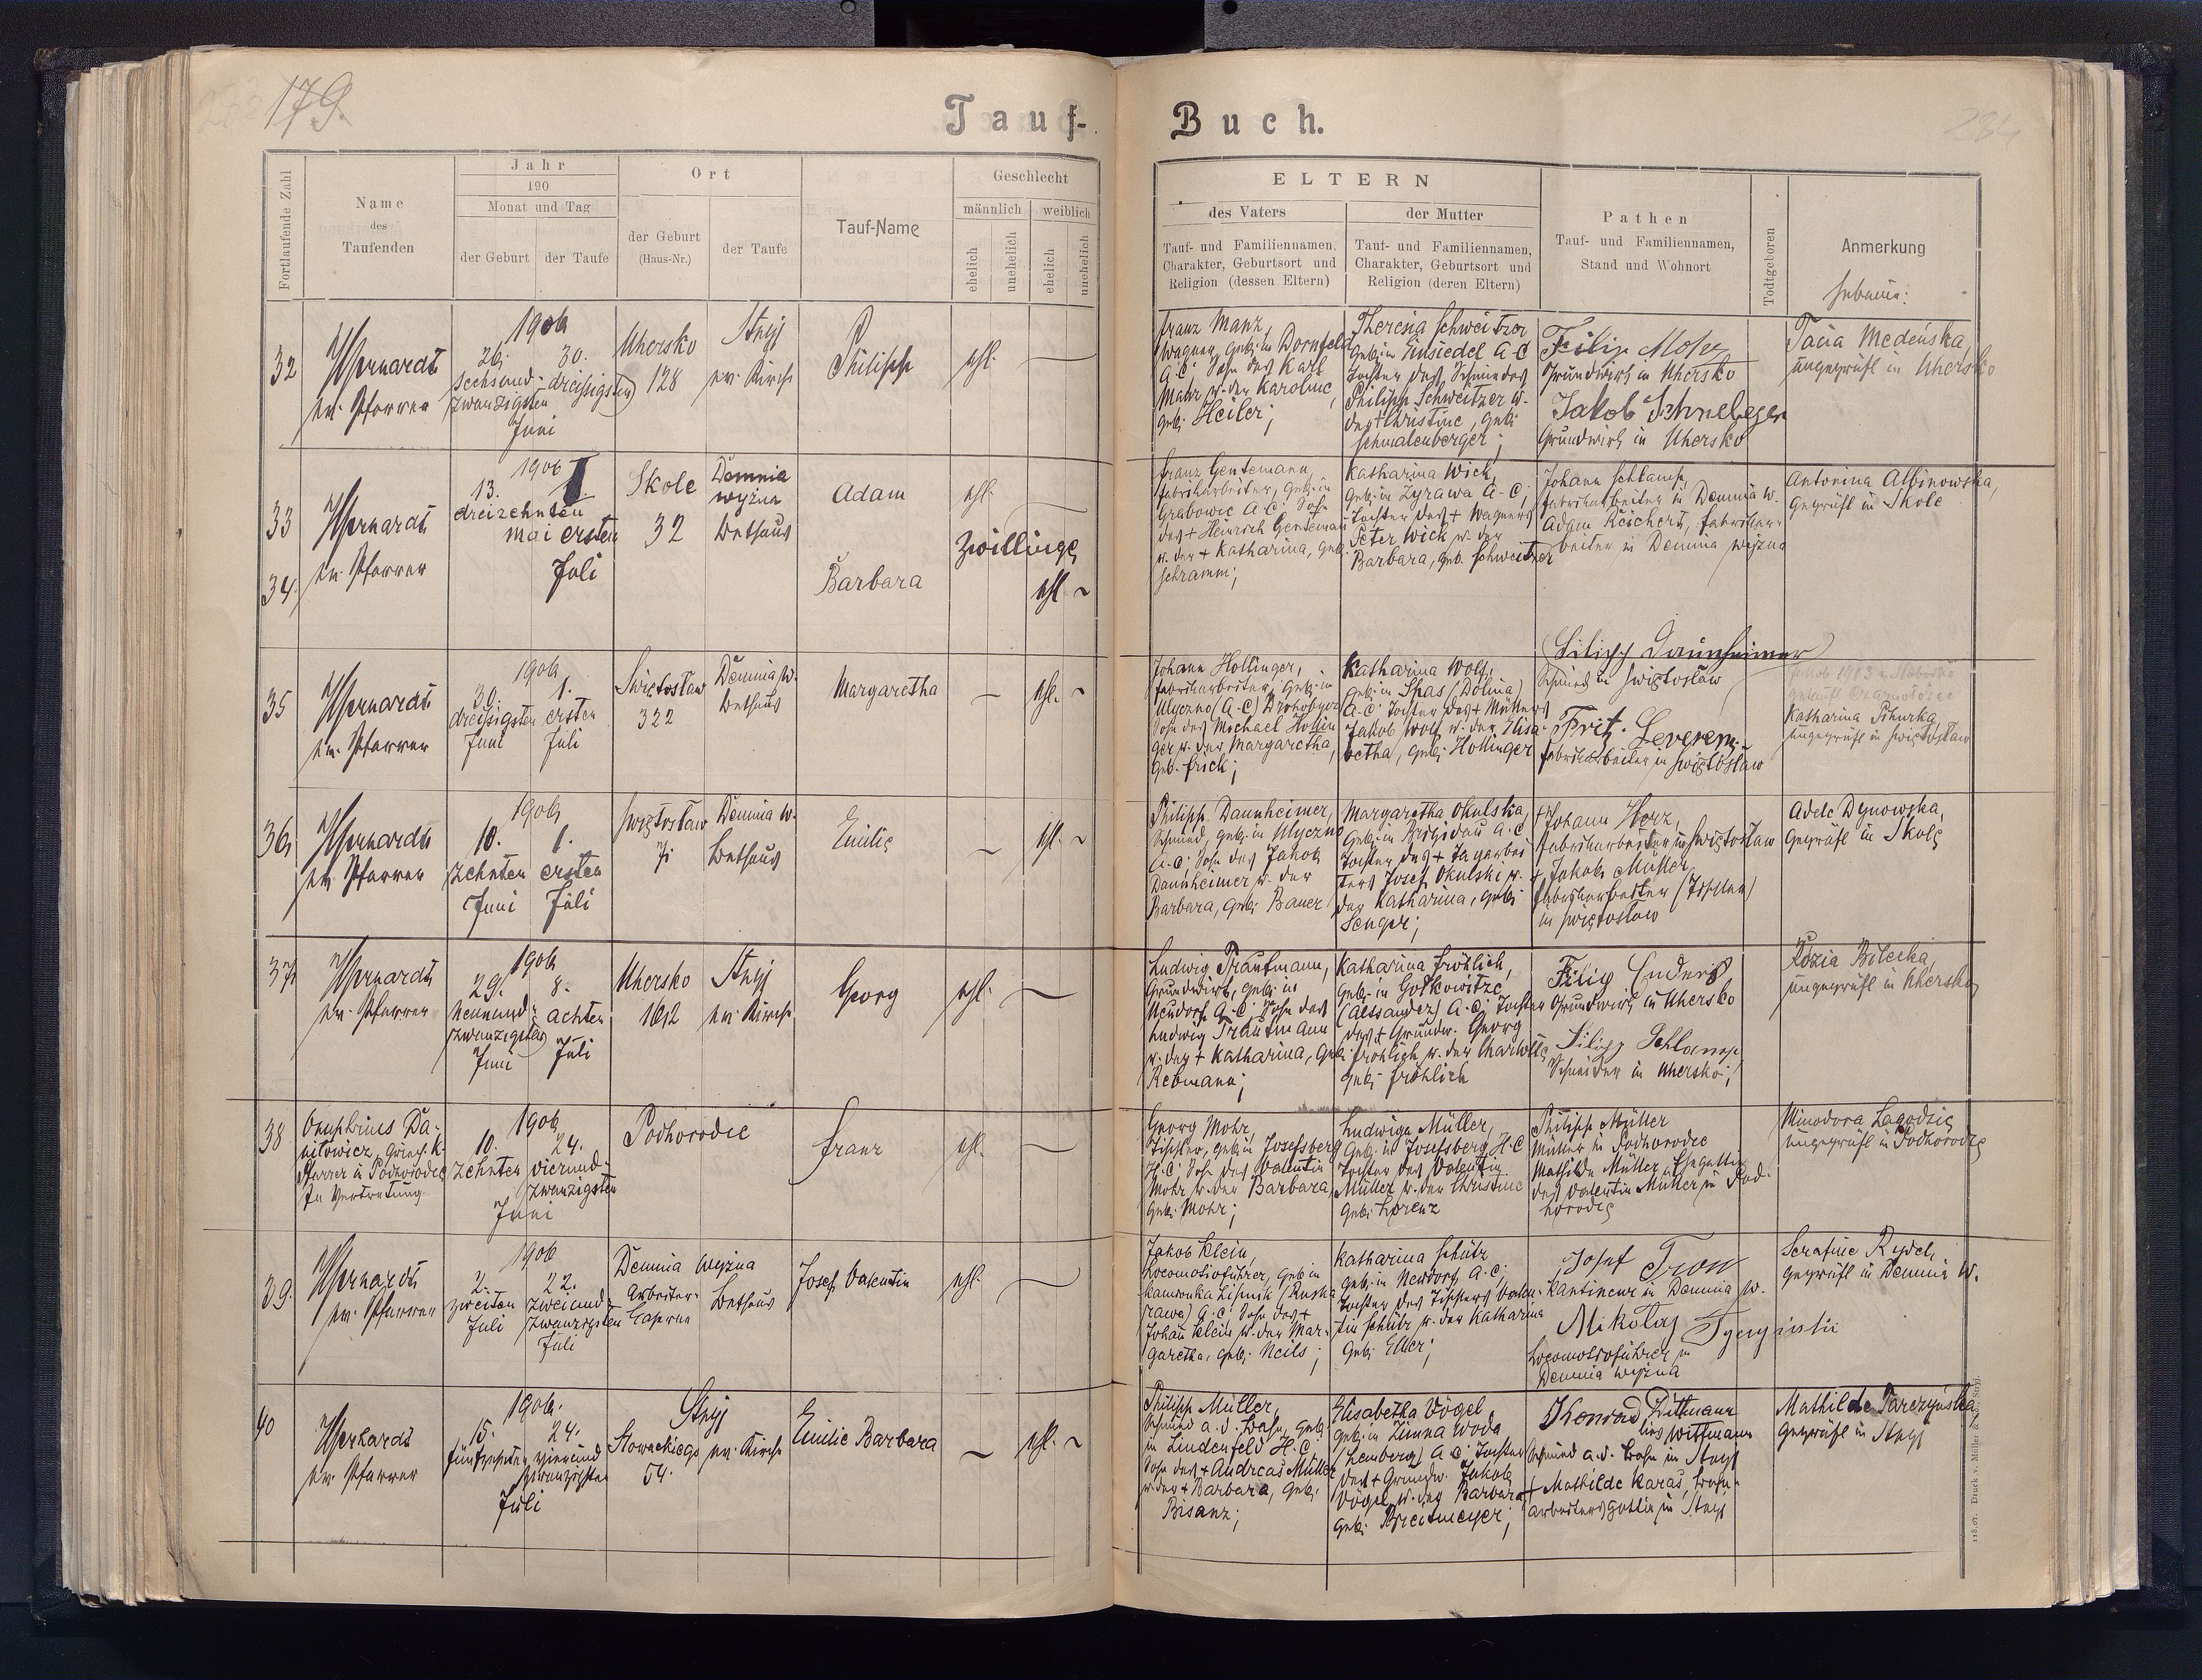 179.
Tauf-
Buch.
284
Fortlaufende Zahl
Name
des
Taufenden
Jahr
190
Monat und Tag
der Geburt
der Taufe
Ort
der Geburt
(Haus-Nr.)
der Taufe
Tauf-Name
Geschlecht
männlich
weiblich
ehelich
unehelich
ehelich
unehelich
ELTERN
des Vaters
Tauf- und Familiennamen,
Charakter, Geburtsort und
Religion (dessen Eltern)
der Mutter
Tauf- und Familiennamen,
Charakter, Geburtsort und
Religion (deren Eltern)
Pathen
Tauf- und Familiennamen,
Stand und Wohnort
Todtgeboren
Anmerkung
32
ev. Pfarrer
1906
26. 30.
sechsund- dreißigsten
zwanzigsten
Juni
Uhersko
128
Stryj
ev. Kirche
Philipp
ehl.
Franz Manz,
Wagner, geb. in Dornfeld
A.C. Sohn des Karl
Manz u. der Karoline,
geb. Heiler;
Theresia Schweitzer
geb. in Einsiedel A.C
Tochter des Schmiedes
Philipp Schweitzer u.
der Christine, geb.
Schmalenberger;
Filip Mohr
Grundwirth in Uhersko
Jakob
Grundwirth in Uhersko
Tacia Medeńska,
ungeprüft in Uhersko
33
34.
ev. Pfarrer
1906
13. 1.
dreizehnten
Mai ersten
Juli
Skole
32
Demnia
wyżna
Bethaus
Adam
Barbara
ehl.
Zwillinge
ehl.
Franz Gentemann,
Fabriksarbeiter, geb. in
Grabowce A.C. Sohn
des + Heinrich Gentemann
u. der + Katharina, geb.
Schramm;
Katharina Wick,
geb. in Zyrawa A-C,
Tochter des + Wagners
Peter Wick u. der
Barbara, geb. Schweitzer
Johann Schlamp,
Fabriksarbeiter in Demnia w.
Adam Reichert, Fabriksar-
beiter in Demnia wyżna
Antonina Albinowska,
geprüft in Skole
35
ev. Pfarrer
1906
30. 1.
dreißigsten ersten
Juni Juli
Świętosław
322
Demnia w.
Bethaus
Margaretha
ehl.
Johann Hollinger,
Fabriksarbeiter, geb. in
Ulyczno (A-C) Drohobycz
Sohn des Michael Hollin
ger u. der Margaretha,
geb. Frick;
Katharina Wolf,
geb. in Spas (Dolina)
A.C. Tochter des + Müllers
Jakob Wolf u. der Elisa-
betha, geb. Hollinger
Filipp Daunheimer
Schmied in Świętosław
Fritz
Fabriksarbeiter in Świętosław
Katharina Pihurka,
ungeprüft in Świętosław
36
ev. Pfarrer
1906
10. 1.
zehnten ersten
Juni Juli
Świętosław
7.
Demnia w.
Bethaus
Emilie
ehl.
Philipp Daunheimer,
Schmied, geb. in Ulyczno
A.C. Sohn des Jakob
Daunheimer u. der
Barbara, geb. Bauer
Margaretha Okulska,
geb. in Brigidau A.C.
Tochter des + Tagarbei
ters Josef Okulski u.
der Katharina, geb.
Senger;
+ Johann Herz,
Fabriksarbeiter in Świętosław
+ Jakob Müller,
Fabriksarbeiter (Tischler)
in Świętosław
Adele Dynowska,
geprüft in Skole
37
ev. Pfarrer
1906
29. 8.
neunund- achten
zwanzigsten
Juni Juli
Uhersko
162
Stryj
ev. Kirche
Georg
ehl.
Ludwig Trautmann,
Grundwirth, geb. in
Neudorf A.C. Sohn des
Ludwig Trautmann
u. der + Katharina, geb.
Rebmann;
Katharina Fröhlich,
geb. in Golkowitze
A.C. Tochter
des + Grundw. Georg
Fröhlich u. der Charlotte
geb. Fröhlich
Filip Enders
Grundwirth in Uhersko
Filipp Schlamp
Schneider in Uhersko;
Rózia Bilecka,
ungeprüft in Uhersko
38
Onuphrius Da-
niłowicz, griech. k.
Pfarrer in Podhorodce
In Vertretung.
1906
10. 24.
zehnten vierund-
zwanzigsten
Juni
Podhorodce
Franz
ehl.
Georg Mohr
Tischler, geb. in Josefsberg
H.C. Sohn des Valentin
Mohr u. der Barbara,
geb. Mohr;
Ludwiga Müller,
geb. in Josefsberg H-C
Tochter des Valentin
Müller u. der Christine
geb. Lorenz
Philipp Müller
Müller in Podhorodce
Mathilde Müller, Ehegattin
des Valentin Müller in Pod-
horodce
Minodora Lagodzic,
ungeprüft in Podhorodce
39.
ev. Pfarrer
1906
2. 22.
zweiten zweiund-
Juli zwanzigsten
Juli
Demnia wyżna
Arbeiter-
Caserne
Bethaus
Josef Valentin
ehl.
Jakob Klein,
Locomotivführer, geb. in
Kamionka Lipnik (Ruska
rawa) A.C. Sohn des +
Johann Klein u. der Mar-
garetha, geb. Neils;
Katharina Schütz
geb. in Neudorf A.C.
Tochter des Tischlers Valen-
tin Schütz u. der Katharina
geb. Eller;
Josef Tron
Kantineur in Demnia w.
Mikołaj
Locomotivführer in
Demnia wyżna
Serafine Rydel,
geprüft in Demnia w.
40
ev. Pfarrer
1906.
15. 24.
fünfzehnten vierund
zwanzigsten
Juli
Stryj
Słowackiego
54.
ev. Kirche
Emilie Barbara
ehl.
Philipp Müller,
Schmied a. d. Bahn, geb.
in Lindenfeld H.C.
Sohn des + Andreas Müller
u. der + Barbara, geb.
Bisanz;
Elisabetha Vögel,
geb. in Zimna Woda
(Lemberg) A.C. Tochter
des + Grundw. Jakob
Vögel u. der Barbara
geb. Breitmeyer;
Konrad Wittmann
lies Wittmann
Schmied a. d. Bahn in Stryj
+ Mathilde Karas, Bahn-
arbeitersgattin in Stryj
Mathilde Parczyńska
geprüft in Stryj